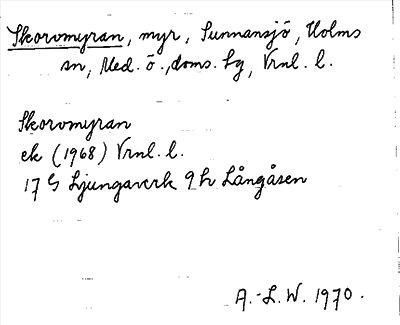 Skorvmyran, myr, Sunnansjö, Holms
sn, Med. ö., doms. lg, Vrnl. l.
Skorvmyran
ek (1968) Vrnl. l.
17 G Ljungaverk 9 h Långåsen
A.-L. W. 1970.